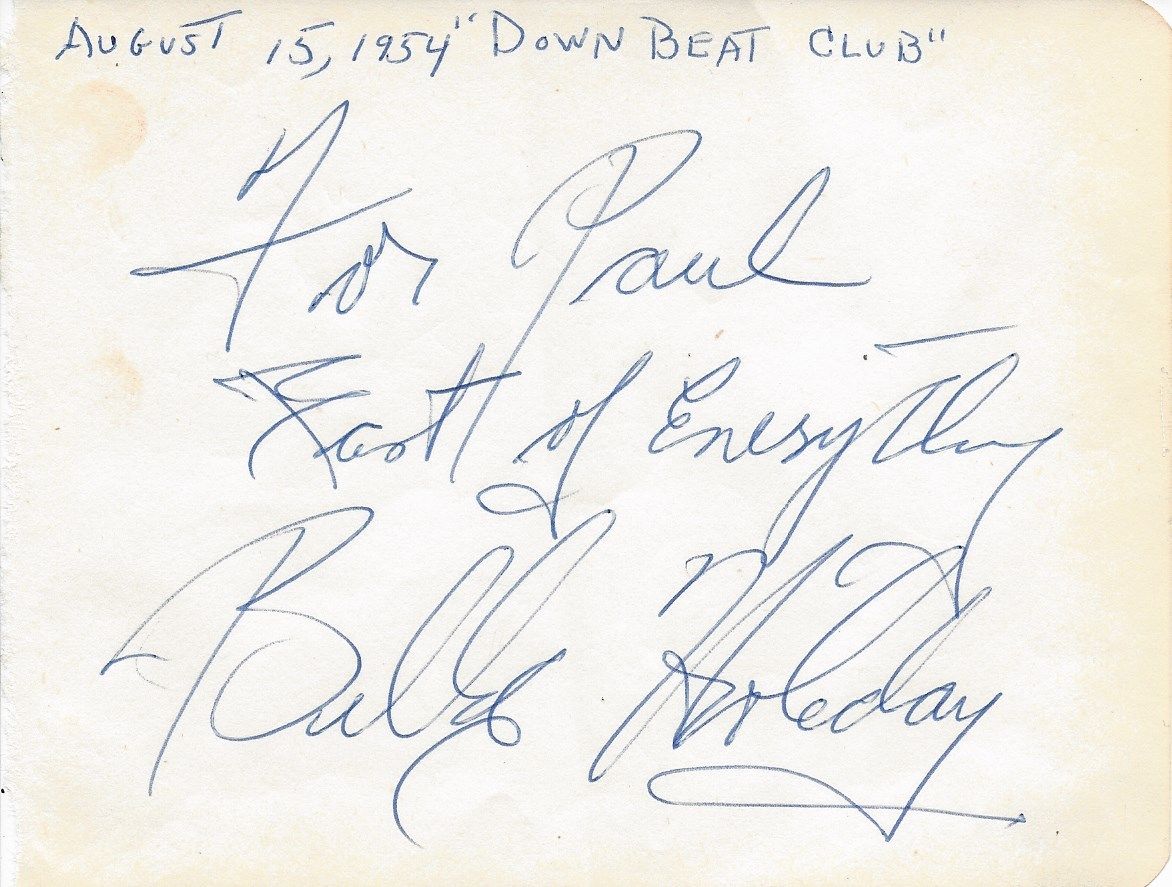 AUGUST 15, 1954 "DOWN BEAT CLUB"
For Paul
of Everything
Billie Holiday